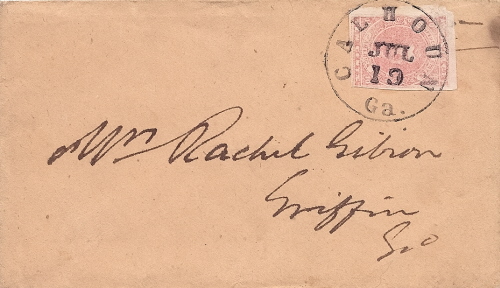 CALHOUN
JUL
19
Ga.
Mrs Rachel Gibson
Griffin
Geo